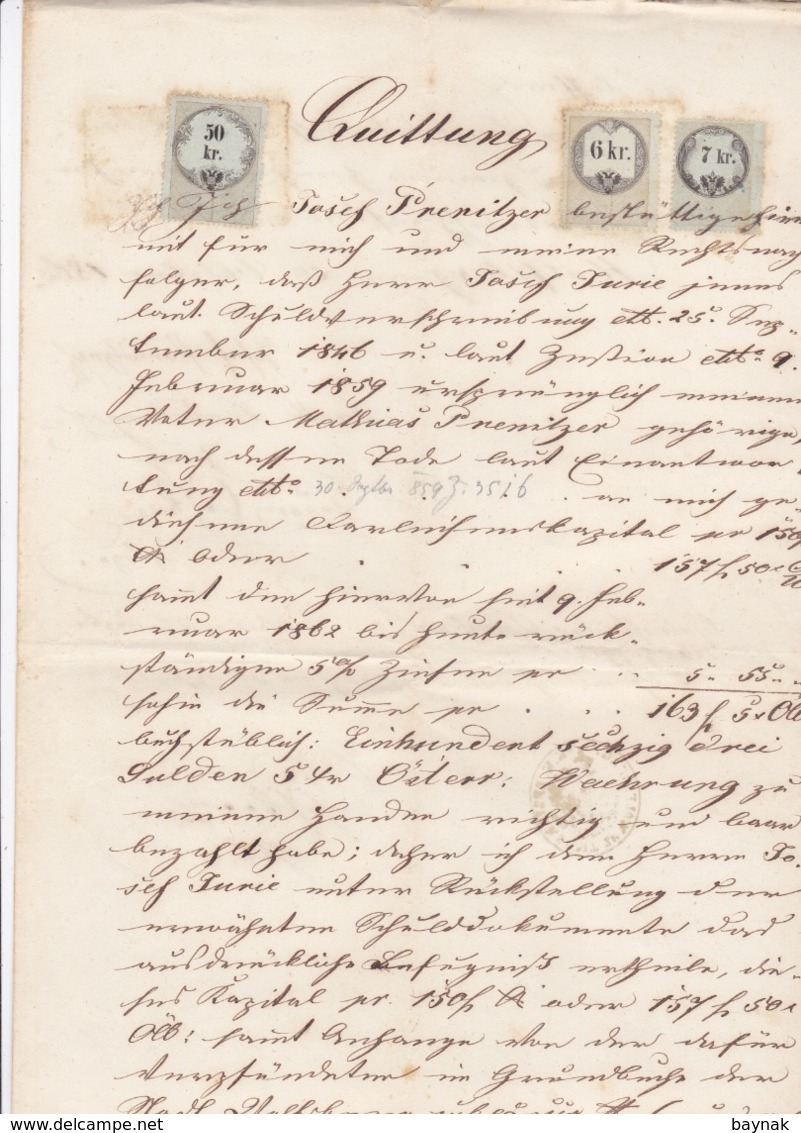 Quittung
50 kr.
6 kr.
7 kr.
Ich Josef Prenitzer bestättige hier
mit für mich und meine Rechtsnach
folger, daß Herr Josef Turie jenes
laut Schuldverschreibung dtto. 25. Sep-
tember 1846 u. laut Zession dtto 9.
Februar 1859 ursprünglich meinem
Vater Mathias Prenitzer gehörige,
nach dessen Tode laut Einantwor
tung dtto 30. 859 Z. 3516 an mich ge-
diehene Darleihenskapital pr 150f
oder 157 f 50
sammt den hievon seit 9. Feb-
ruar 1862 bis heute rück-
ständigen 5% Zinsen pr 5 " 55 "
sohin die Summe pr 163 f 5 x
buchstäblich: Einhundert sechzig drei
Gulden 5 kr Österr: Waehrung zu
meinen Handen richtig und baar
bezahlt habe; daher ich dem Herrn Jo-
sef Turie unter Rückstellung der
erwähnten Schulddokumente das
ausdrückliche Befugniß ertheile, die-
ses Kapital pr. 150 f oder 157 f 50 x
sammt Anhange von der dafür
verpfändeten im Grundbuche der
Stadt
baynak